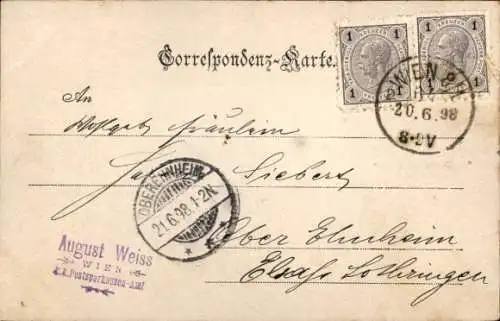 Correspondenz-Karte.
1 KREUZER 1
1 KREUZER 1
WIEN
20.6.98
8-9V
An
Wohlgeb Fräulein
Siebert
OBEREHNHEIM
21.6.98.1-2N.
Ober Ehnheim
Elsass Lothringen
August Weiss
WIEN
k.k.Postsparkassen-Amt